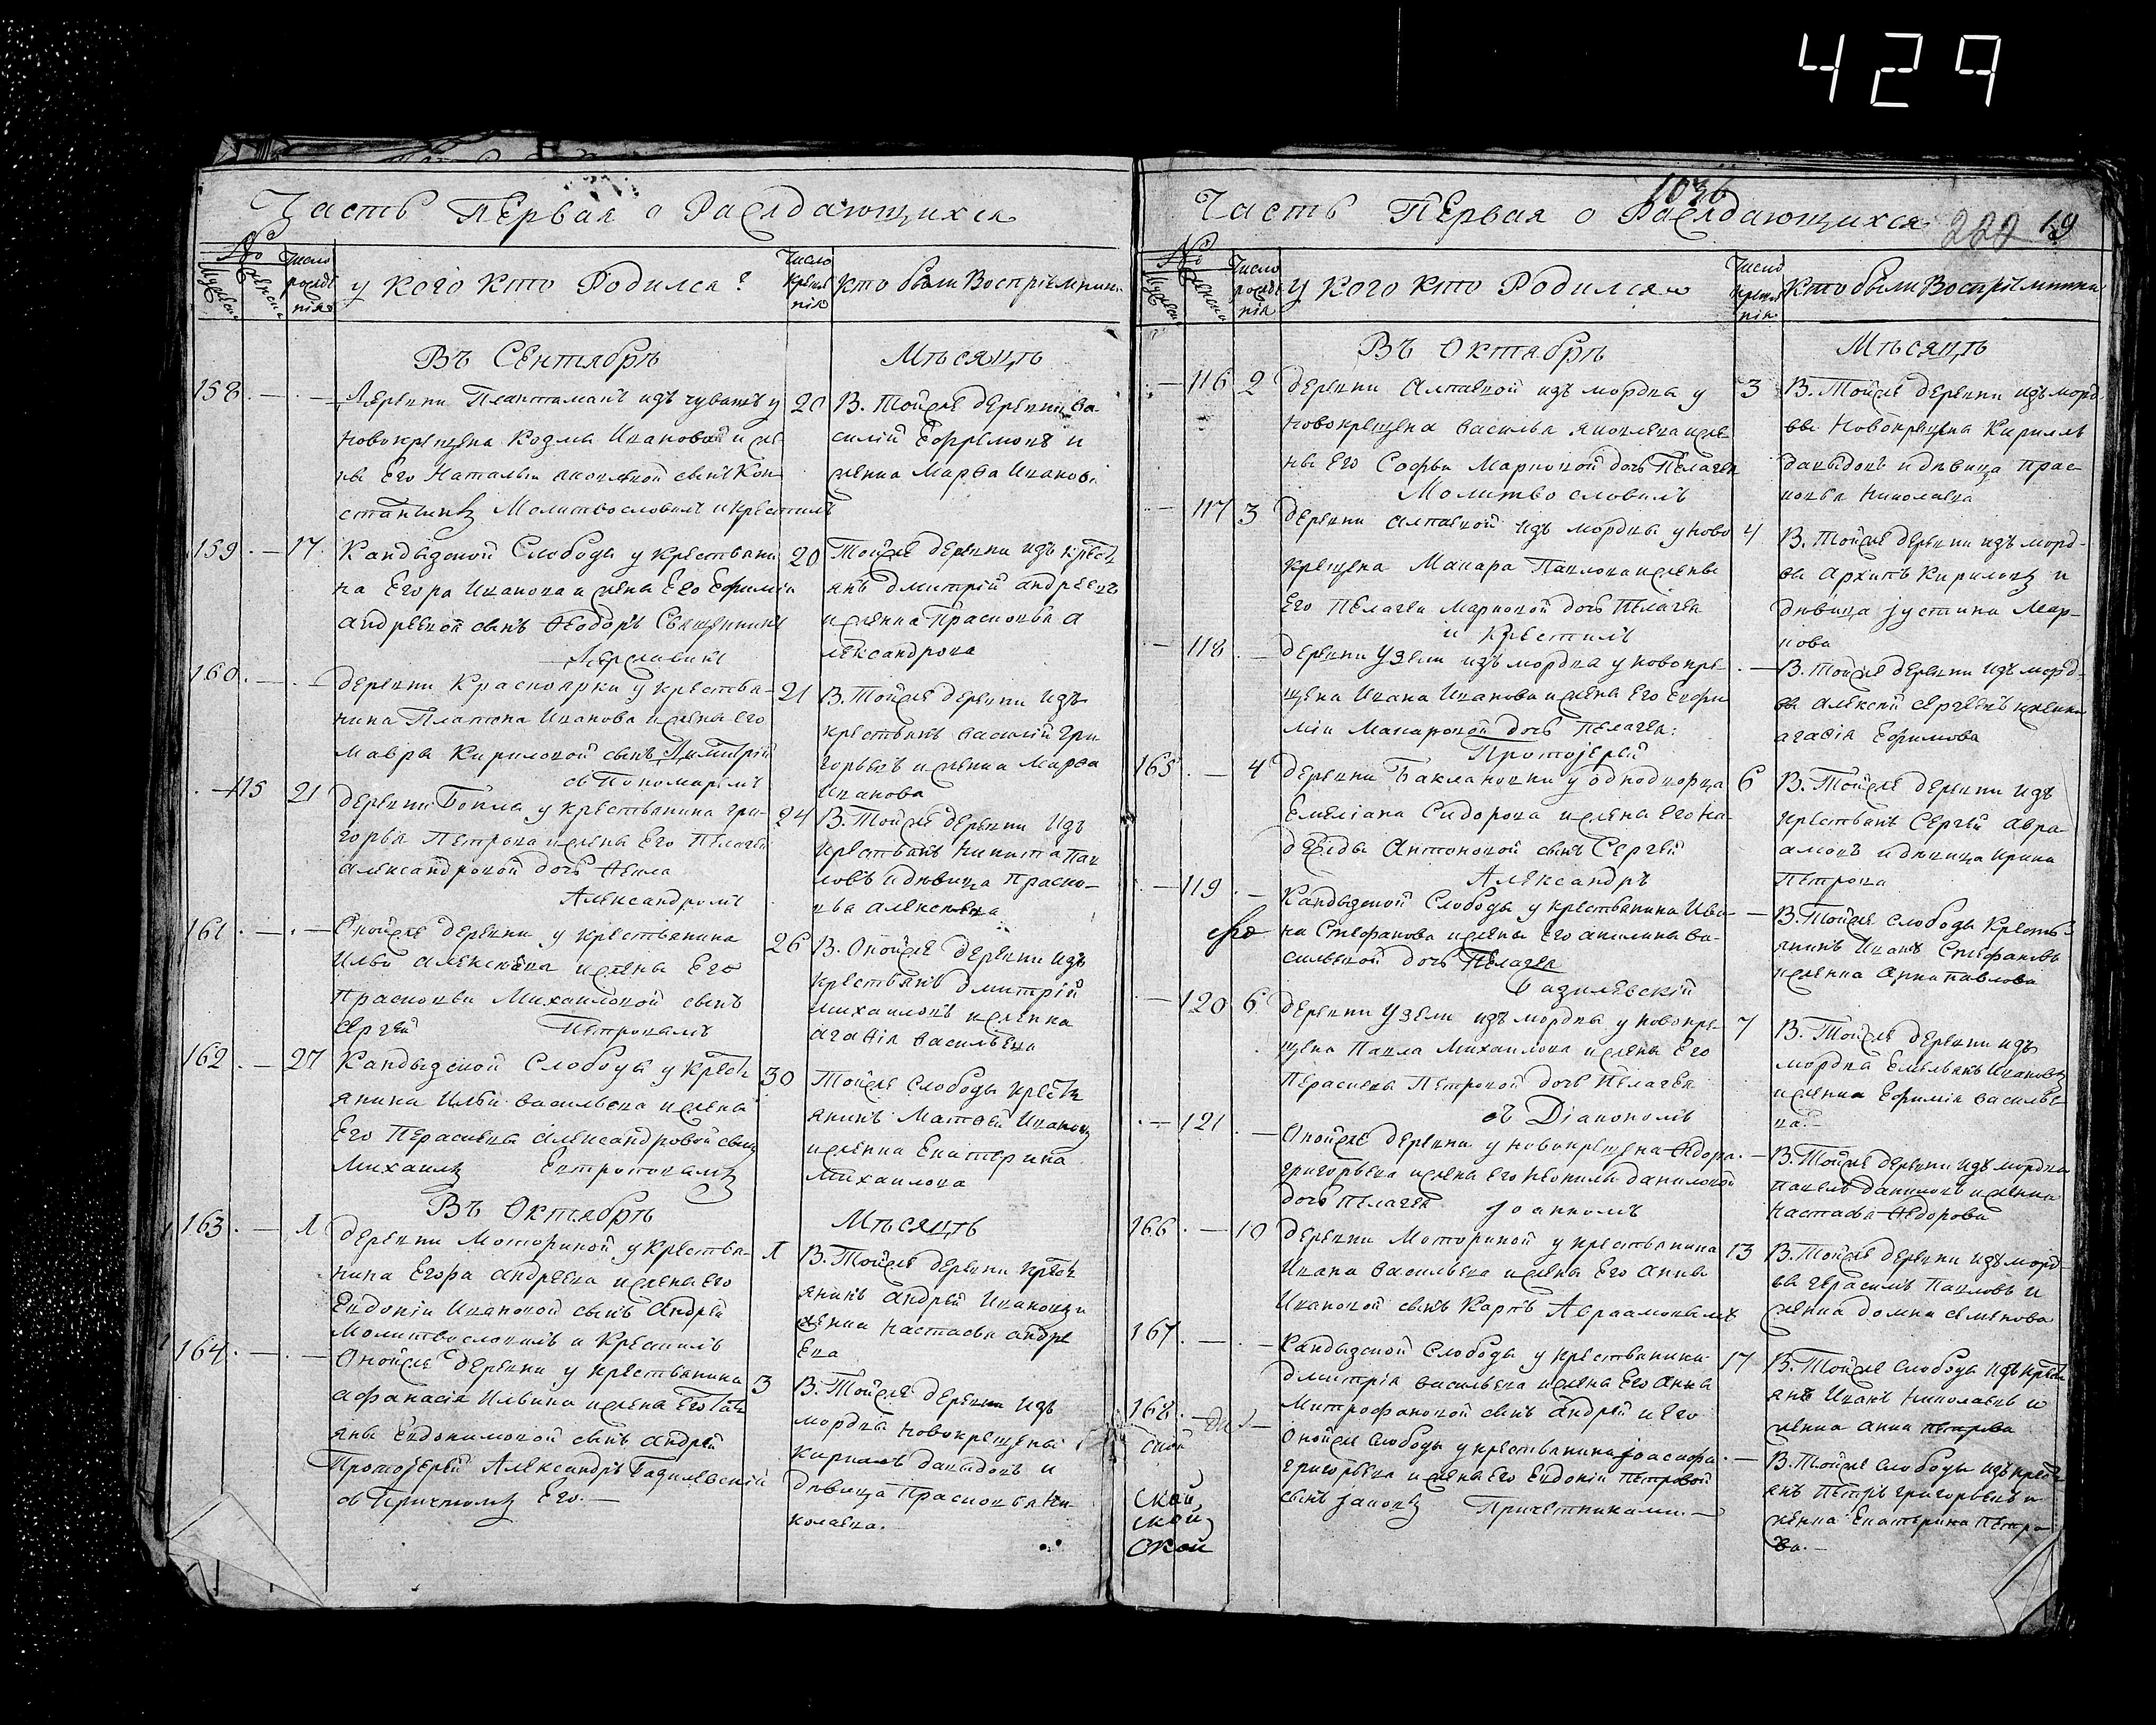 429
Часть Первая о Раждающихся
№
Мужеск.
Женск.
Число рожденія
у кого кто Родился?
Число крещенія
кто были Воспріемники
Въ Сентябрѣ
Мѣсяцѣ
158 . — . —
Деревни изъ чувашъ у
новокрещена Козмы Иванова и же-
ны Его Натальи сынъ Кон-
стантинъ Молитвословилъ и крестилъ
20
В. Тойже деревни Ва-
силій Ефремовъ и
женка Марѳа Иванова
159 . — 17
Кандызской Слободы у крестьяни
на Егора Иванова и жены Его Ефиміи
андреевой сынъ Ѳеодоръ Священникъ
20
Тойже деревни изъ крест
янъ дмитрій андреевъ
и женка Прасковья а
лександрова
160 . — . —
деревни Красноярки у крестья-
нина Платона Иванова и жены его
мавры Кириловой сынъ Димитрій
съ Пономаремъ
21
В. Тойже деревни изъ
крестьянъ василій гри
горьевъ и женка марѳа
Иванова
. — 115 21
деревни у крестьянина гри-
горья Петрова и жены Его Пелагеи
александровой дочь Ѳекла
Александромъ
24
В. Тойже деревни изъ
крестьянъ никита пав
ловъ и дѣвица праско-
вья алексѣева
161 . — . —
Онойже деревни у крестьянина
Ильи алексѣева и жены Его
прасковьи Михаиловой сынъ
Сергей Петровымъ
26
В. Онойже деревни изъ
крестьянъ дмитрій
михаиловъ и женка
агаѳія васильева
162 . — 27
Кандызской Слободы у крест
янина Ильи васильева и жены
Его Парасковьи Александровой сынъ
Михаилъ
30
Тойже Слободы крест
янинъ Матѳей Ивановъ
и женка Екатерина
михаилова
Въ Октябрѣ
Мѣсяцѣ
163 . — 1
деревни Моториной у крестья-
нина Егора андреева и жены его
Евдокіи Ивановой сынъ Андрей
Молитвословилъ и Крестилъ
1
В. Тойже деревни крест
янинъ андрей Ивановъ и
женка настасья андре
ева
164 . — . —
Онойже деревни у крестьянина
афанасія Ильина и жены Его тат
яны Евдокимовой сынъ андрей
Протоіерей Александръ Базилевскій
съ Причтомъ Его. —
3
В. Тойже деревни изъ
мордвы новокрещены
кирилъ давыдовъ и
дѣвица прасковья ни
колаева. —
1036
222 19
Часть Первая о Раждающихся
№
Мужеск.
Женска
Число рожденія
у кого кто Родился
Число крещенія
кто были Воспріемники
Въ Октябрѣ
Мѣсяцѣ
. — 116 2
деревни Алпаевой изъ мордвы у
новокрещена василья яковлева и же
ны Его Софьи Марковой дочь Пелагея
Молитвословилъ
3
В. Тойже деревни изъ морд
вы новокрещенъ Кирилъ
давыдовъ и дѣвица прас
ковья николаева
— 117 3
деревни алпаевой изъ мордвы у ново
крещена Макара Павлова и жены
Его Пелагеи Марковой дочь Пелагея
и Крестилъ
4
В. Тойже деревни изъ морд-
вы Архипъ Кириловъ и
дѣвица Іустина Мар-
кова
. — 118 . —
деревни Узели изъ мордвы у новокре
щена Ивана Иванова и жены Его Евфи
міи Макаровой дочь Пелагея:
Протоіерей
. —
В. Тойже деревни изъ морд-
вы алексей сергеевъ и женка
агаѳія Ефимова
165 . — 4
деревни Баклановки у однодворца
Емеліана Сидорова и жены Его На
дежды Антоновой сынъ Сергей
Александръ
6
В. Тойже деревни изъ
крестьянъ Сергей авра
амовъ и дѣвица ирина
Петрова
. — 119 . —
Кандызской Слободы у крестьянина Ива
на Стефанова и жены Его акилины ва-
сильевой дочь Пелагея
Базилевскій
—
В. Тойже слободы Кресть-
янинъ Иванъ Стефановъ
и женка Анна павлова
. — 120 6
деревни Узели изъ мордвы у новокре
щена Павла Михаилова и жены Его
Парасковьи Петровой дочь Пелагея
съ Діакономъ
7
В. Тойже деревни изъ
мордвы Емельянъ Ивановъ
и женка Ефимія василье
ва. —
. — 121 . —
Онойже деревни у новокрещена Ѳедора
григорьева и жены Его Неонилы даниловой
дочь Пелагея Іоанномъ
. —
В. Тойже деревни изъ мордвы
павелъ даниловъ и женка
настасья Ѳедорова
166 . — 10
деревни Моториной у крестьянина
Ивана васильева и жены Его Анны
Ивановой сынъ Карпъ Авраамовымъ
13
В. Тойже деревни изъ морд
вы Герасимъ Павловъ и
женка домна семенова
167 . — . —
Кандызской Слободы у крестьянина
дмитрія васильева и жены Его Анны
Митрофановой сынъ андрей и Его
17
В. Тойже слободы изъ крест
янъ Иванъ николаевъ и
женка анна петрова
168 . — . —
Онойже слободы у крестьянина Іоасафа
григорьева и жены Его Евдокіи Петровой
сынъ Іаковъ Причетниками. —
. —
В. Тойже слободы изъ крест
янъ Петръ григорьевъ и
женка Екатерина петро
ва. —
ской
ской
ской
ской